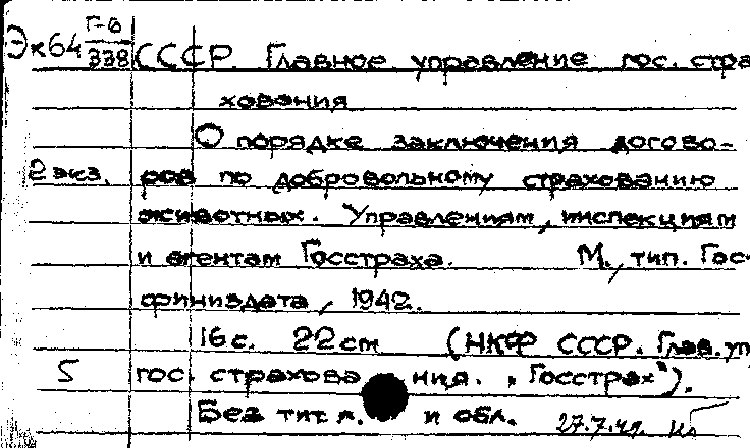 Эк64 Г-6/338 СССР. Главное управление гос. стра
хования
О порядке заключения догово-
2 экз. ров по добровольному страхованию
животных. Управлениям, инспекциям
и агентам Госстраха. М., тип. Гос-
финиздата, 1942.
16 с. 22 cm (НКФ СССР. Глав. уп
5 гос. страхования. "Госстрах").
Без тит. л. и обл. 27.7.49.